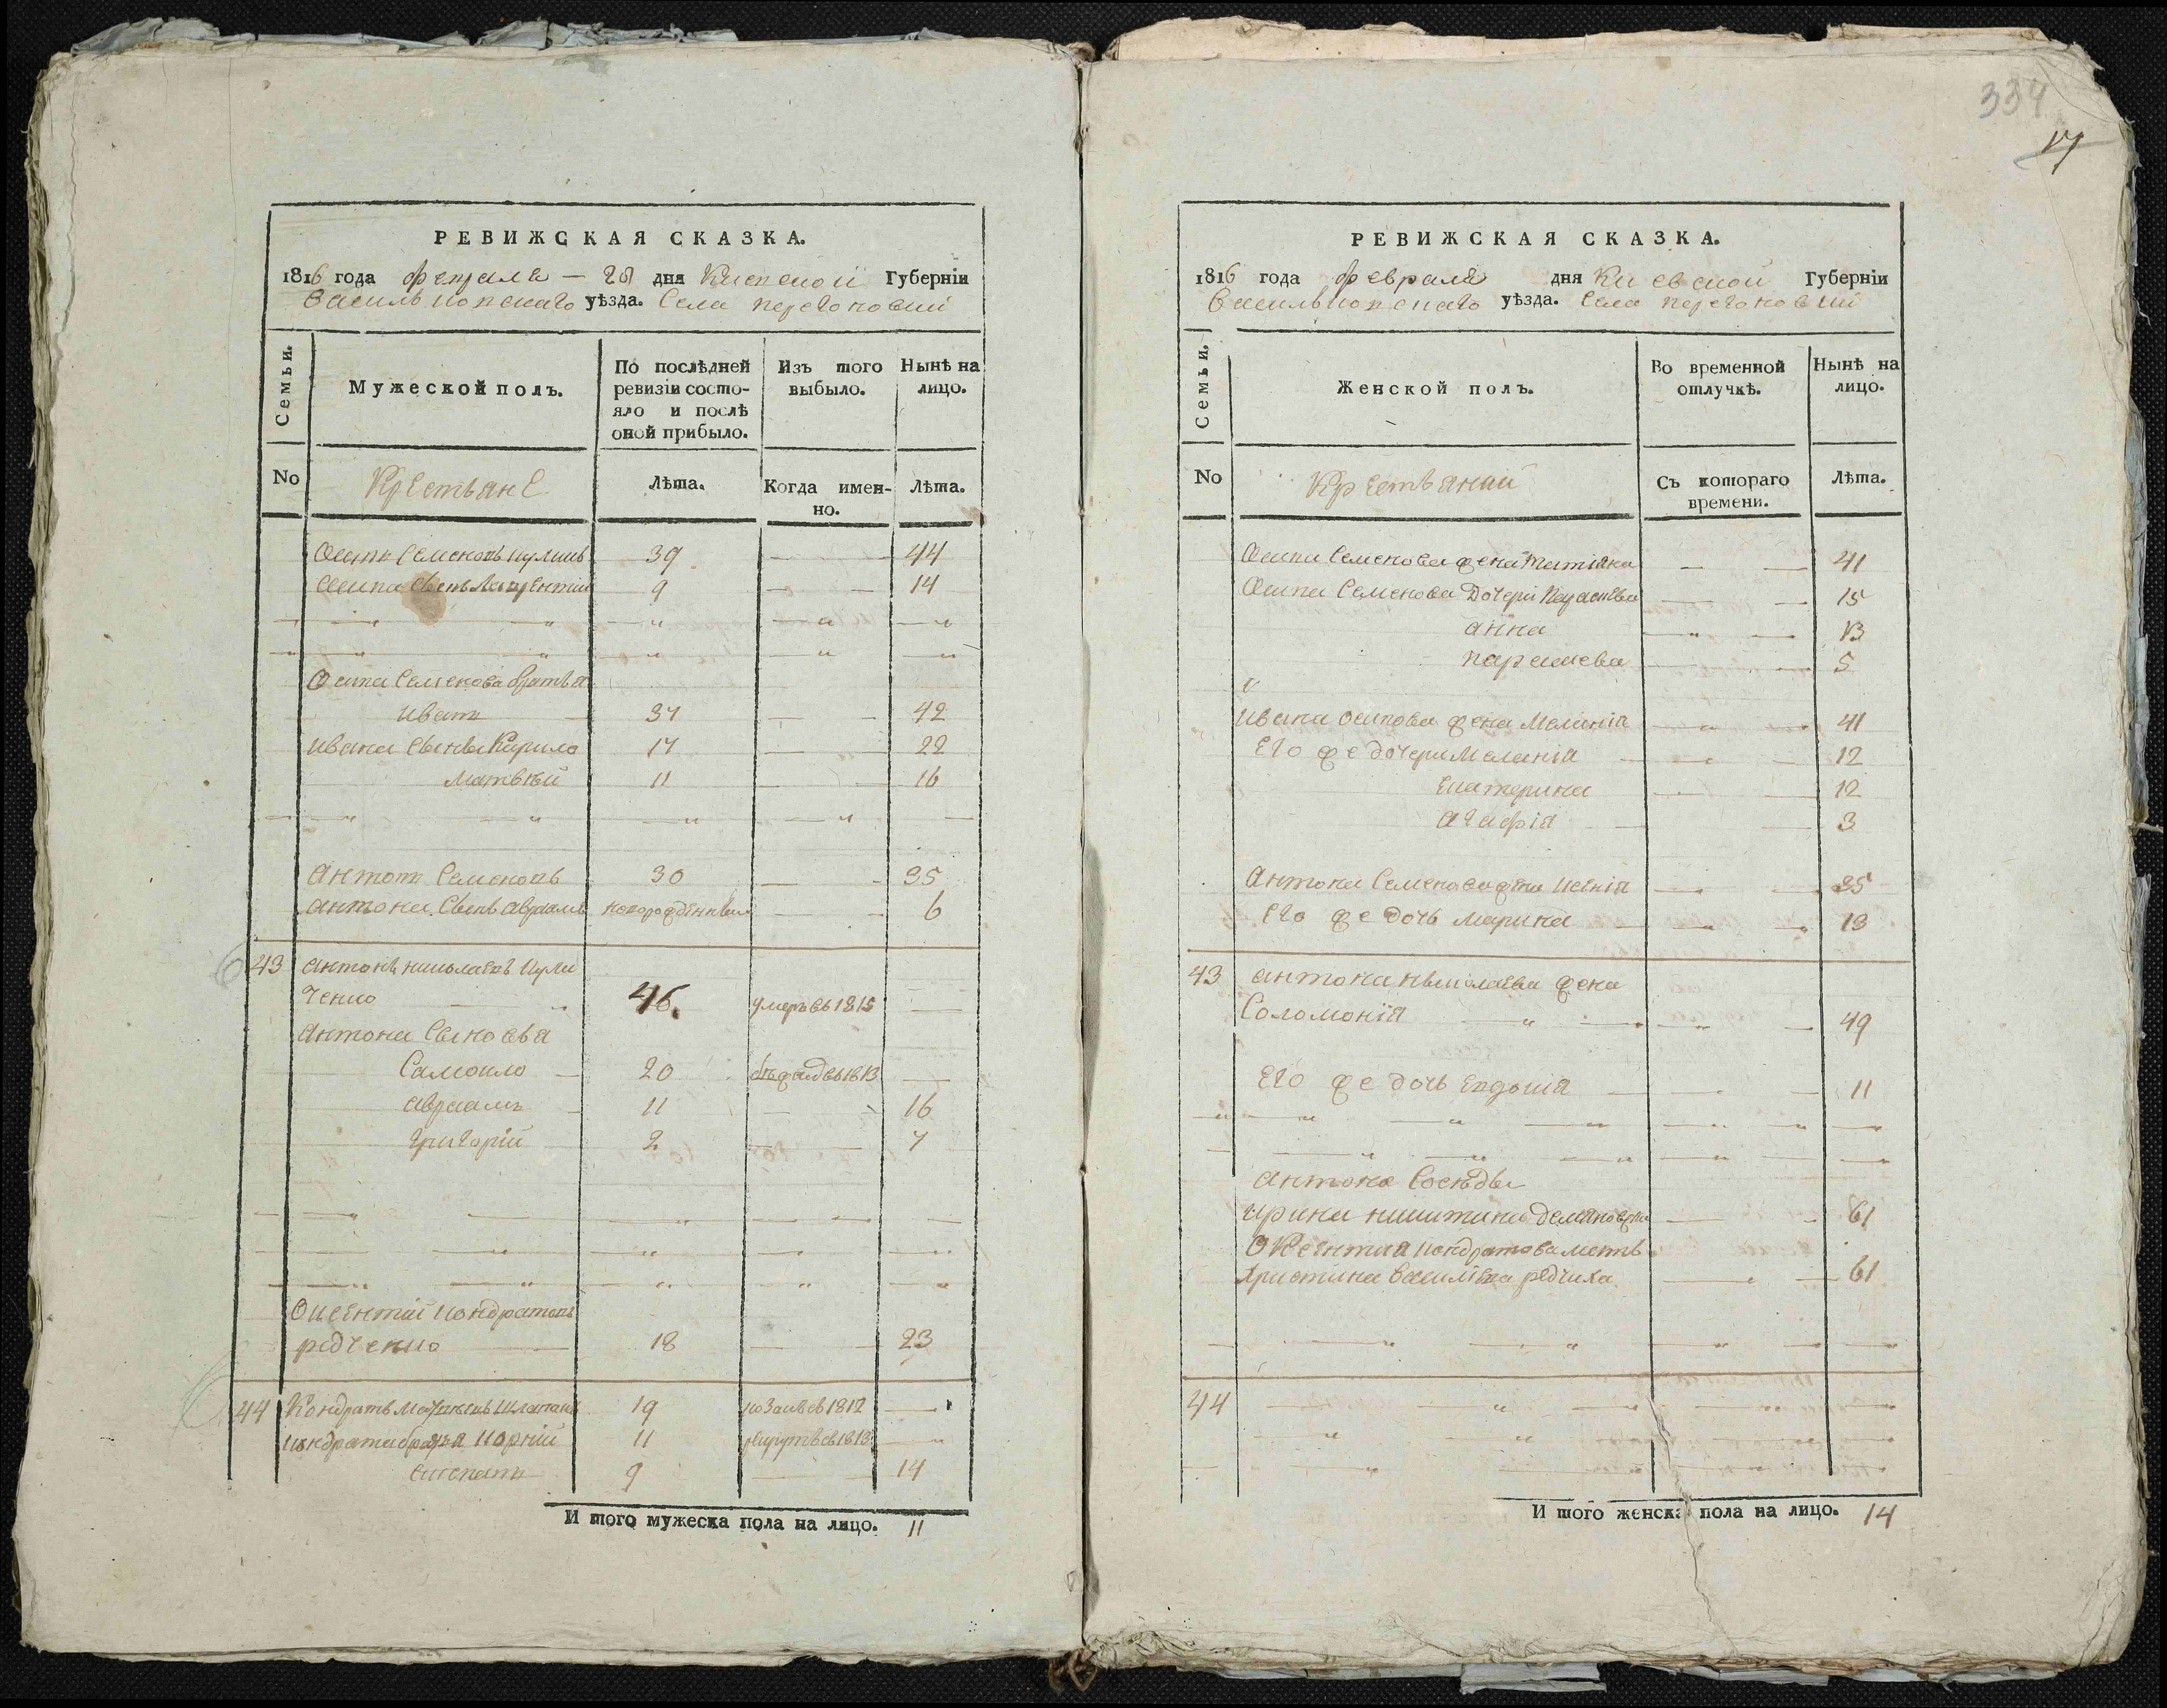 334
17
РЕВИЖСКАЯ СКАЗКА.
1816 года февраля — 28 дня Киевской Губернїи
Васильковскаго уѣзда. Села Перегоновки
Семьи.
Мужеской полъ.
По послѣдней ревизїи состояло и послѣ оной прибыло.
Изъ того выбыло.
Нынѣ на лицо.
No
Крестьяне
Лѣта.
Когда именно.
Лѣта.
Осипъ Семеновъ 39 — 44
Осипа Сынъ Лаврентии 9 — — 14
Осипа Семенова братья
Иванъ 37 — — 42
Ивана Сыновья Кирило 17 — — 22
Матвѣй 11 — — 16
Антонъ Семеновъ 30 — 35
Антона Сынъ Авраамъ новорожденный — 6
43 Антонъ Николаевъ Кули
ченко 46. умеръ въ 1815 —
Антона Сыновья
Самоило 20 бѣжалъ въ 1813 —
Авраамъ 11 — 16
Григорїй 2 — 7
Оксентїй Кондратовъ
редченко 18 — 23
44 Кондратъ 19 1812 —
Кондрата братья Корнїй 11 рекрутъ въ 1813 —
9 — 14
И того мужеска пола на лицо. 11
РЕВИЖСКАЯ СКАЗКА.
1816 года февраля дня Киевской Губернїи
Васильковскаго уѣзда. Села Перегоновки
Семьи.
Женской полъ.
Во временной отлучкѣ.
Нынѣ на лицо.
No
Крестьянки
Съ котораго времени.
Лѣта.
Осипа Семенова жена Татіяна — — 41
Осипа Семенова Дочери — — 15
Анна — — 13
Параскева — — 5
Ивана Осипова жена Меланїя — — 41
Его же дочери Меланїя — — 12
Екатерина — — 12
Агафїя — — 3
Антона Семенова жена Ксенїя — — 35
Его же дочь Марина — — 13
43 Антона Николаева жена
Соломонїя — — 49
Его же дочь Евдокїя — — 11
Антона Сосѣды
Ирина Никитина — — 61
Оксентия Кондратова мать
Христина Василїева редчиха — — 61
44
И того женска пола на лицо. 14